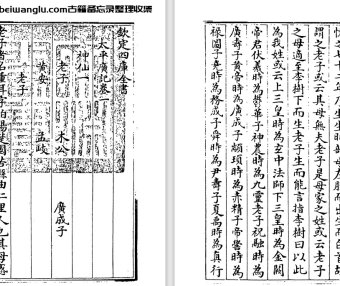 beiwanglu.com古籍备忘录整理收集
欽定四庫全書
太平廣記卷一
神仙一
老子 木公 廣成子
黄安 孟岐
老子
老子者名重耳字伯陽楚國苦縣曲仁里人也其母感
之母適至李樹下而生老子生而能言指李樹曰以此
為我姓或云上三皇時為玄中法師下三皇時為金闕
帝君伏羲時為鬱華子神農時為九靈老子祝融時為
廣壽子黄帝時為廣成子顓頊時為赤精子帝嚳時為
禄圖子堯時為務成子舜時為尹壽子夏禹時為真行
謂之老子或云其母無夫老子是母家之姓或云老子